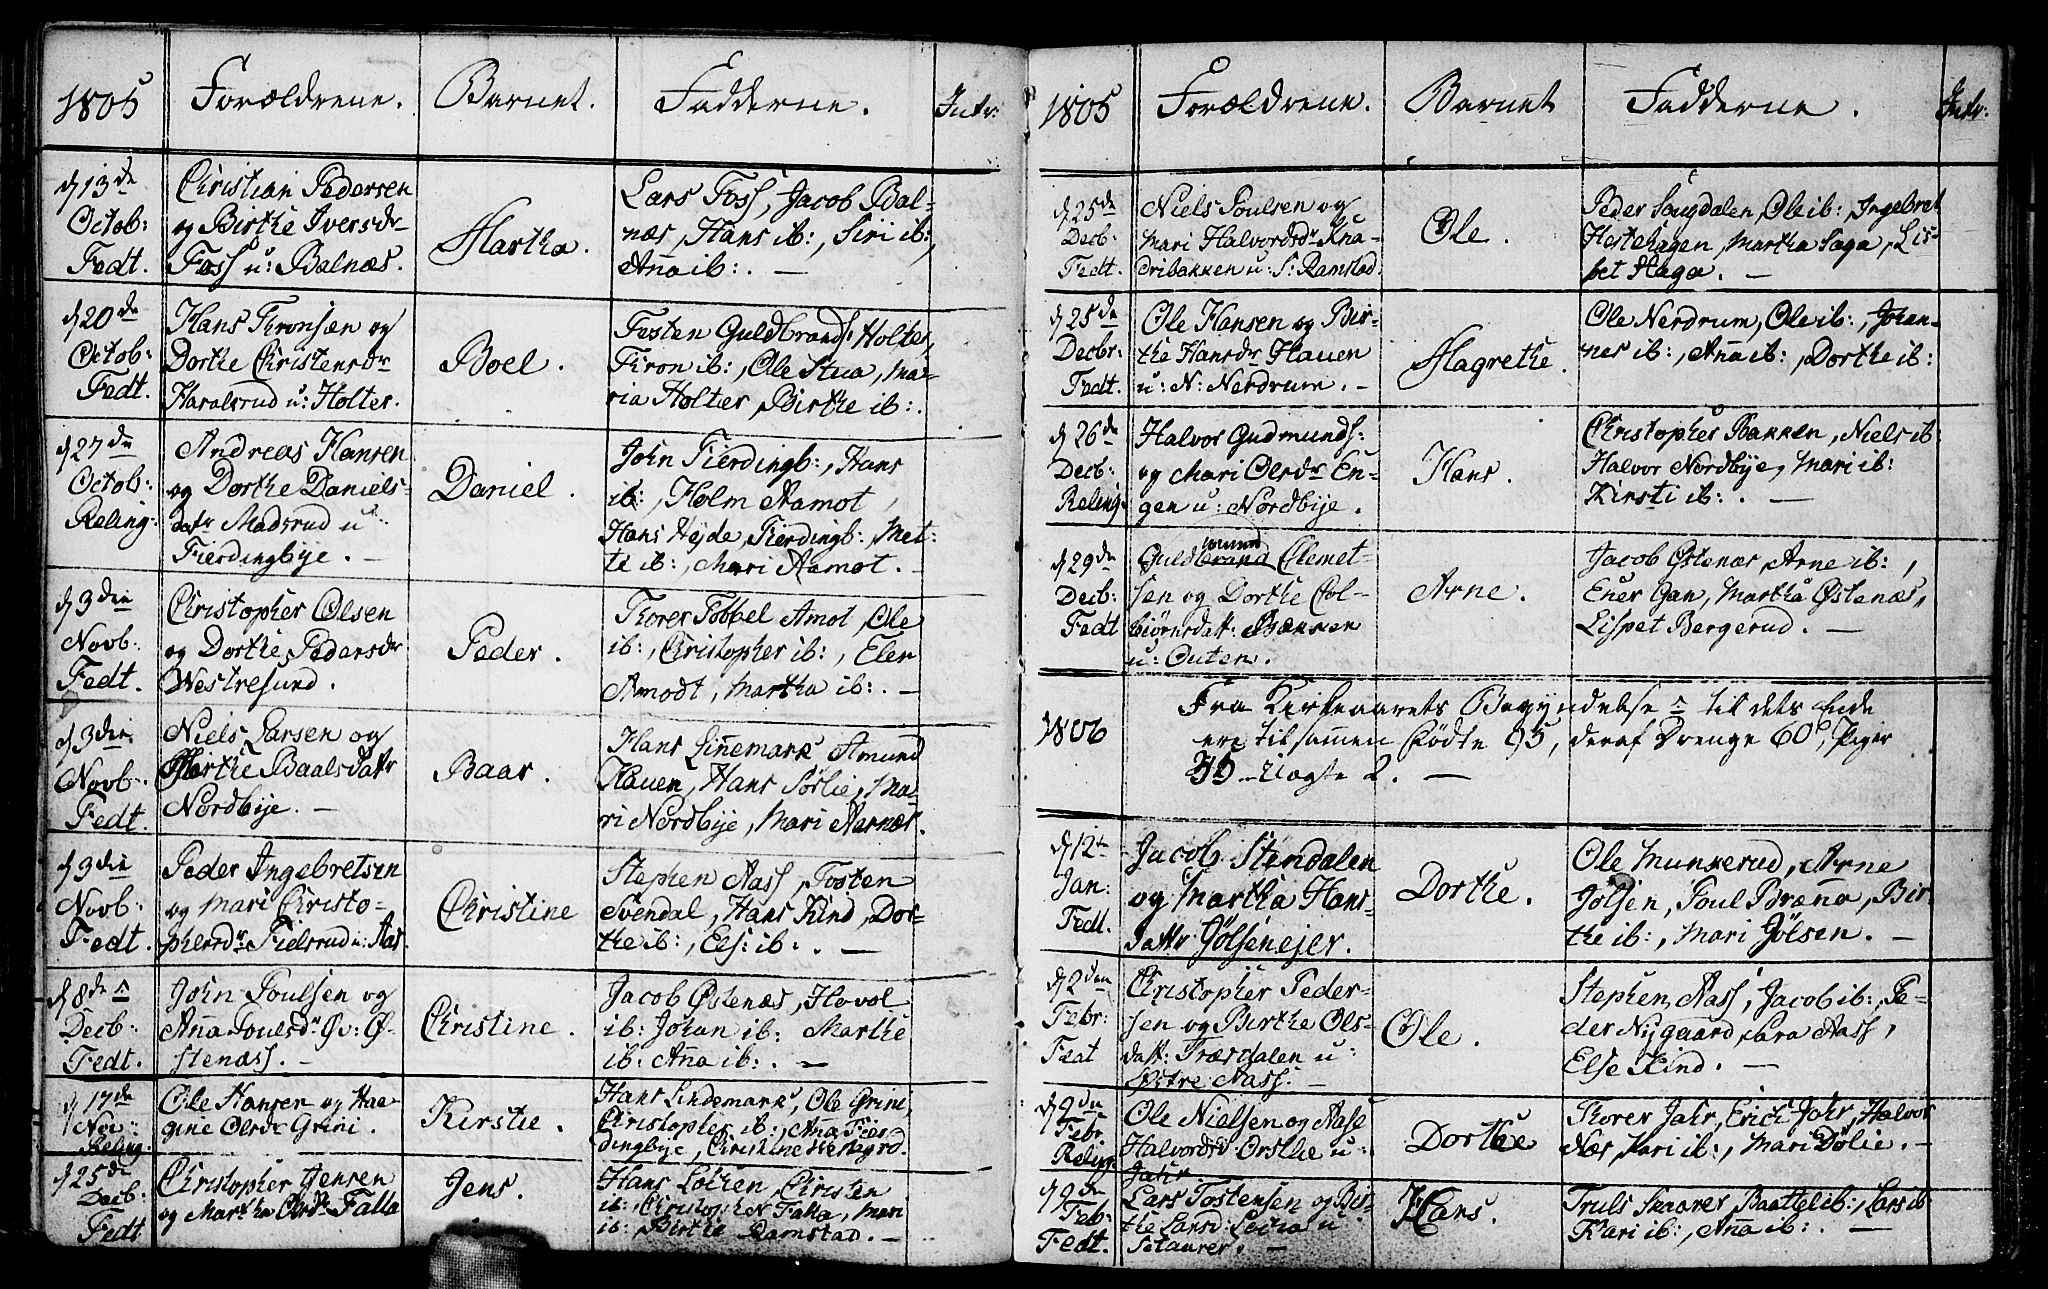 1805
Forældrene.
Barnet.
Fadderne.
Intr:
d 13de
Octob:
Fedt.
Christian Pedersen
og Birthe Iversdr
Foss u: Balnæs.
Martha.
Lars Foss, Jacob Bal-
næs, Hans ib:, Siri ib:,
Aña ib:. —
d 20de
Octob:
Fedt.
Hans Thronsen og
Dorthe Christensdr
Haralsrud u: Holter.
Boel.
Tosten Guldbrands: Holter,
Thron ib:, Ole Stua, Ma-
ria Holter, Birthe ib:.
d 27de
Octob:
Reling:
Andreas Hansen
og Dorthe Daniels-
datr Madsrud u:
Fierdingbye. —
Daniel.
John Fierdingb:, Hans
ib:, Holm Aamot,
Hans Heyde, Fierdingb:, Met-
te ib:, Mari Aamot. —
d 3die
Novb:
Fedt.
Christopher Olsen
og Dorthe Pedersdr
Westresund.
Peder.
Thorer Tobbel Amot, Ole
ib:, Christopher ib:, Eler
Amodt, Martha ib:. —
d 3die
Novb:
Fedt.
Niels Larsen og
Marthe Baalsdatr
Nordbye. —
Baar.
Hans Liñemark, Amund
Hauen, Hans Sørlie, Ma-
ri Nordbye, Mari Aarnæs.
d 3die
Novb:
Fedt.
Peder Ingebretsen
og Mari Christo-
phersdr Fielsrud u: Aas.
Christine
Stephen Aass, Tosten
Svendal, Hans Kind, Dor-
the ib:, Els: ib:. —
d 8de
Decb:
Fedt.
John Poulsen og
Aña Poulsdr Øv: Ø-
stenæss. —
Christine.
Jacob Østenæs, Hovol
ib: Johan ib: Marthe
ib: Aña ib:. —
d 17de
Nov:
Reling:
Ole Hansen og Haa-
gine Olsdr Grini.
Kirstie.
Hans Lindemark, Ole Grini,
Christopher ib:, Ana Fier-
dingbye, Christine Westegrd.
d 25de
Decb:
Fedt
Christopher Jensen
og Martha Olsdr Falla
Jens.
Hans Løken, Christen
ib:, Christopher Falla, Mari
ib:, Birthe Ramstad. —
1805
Forældrene.
Barnet
Fadderne.
Intr:
d 25de
Decb:
Fedt.
Niels Poulsen og
Mari Halvordsdr Kna-
dribakken u: S: Ramstad.
Ole.
Peder Sougdalen, Ole ib:, Ingebret
Hestehagen, Martha Saga, Lis-
bet Haga. —
d 25de
Decbr:
Fedt.
Ole Hansen og Bir-
the Hansdr Hauen
u: N: Nerdrum. —
Magrethe.
Ole Nerdrum, Ole ib:, Johan-
nes ib:, Aña ib:, Dorthe ib:
d 26de
Decb:
Reling.
Halvor Gudmunds:
og Mari Olsdr En-
gen u: Nordbye.
Hans.
Christopher Bakken, Niels ib:
Halvor Nordbye, Mari ib:
Kirsti ib:. —
d 29de
Decb:
Fedt
Guldbrand Clemet-
sen og Dorthe Col-
biørnsdatt: Bakken
u: Outen.
Arne.
Jacob Østenæs, Arne ib:,
Ener Gan, Martha Østenæs,
Lispet Bergerud. —
1806
Fra Kirkeaarets Begyndelse til dets Ende
ere tilsamen fødte 95, deraf Drenge 60, Piger
35 — Uægte 2. —
d 12te
Jan:
Fedt.
Jacob Stendalen
og Martha Hans-
datr Jølsenejer.
Dorthe.
Ole Munkerud, Arne
Jølsen, Poul Brænna, Bir-
the ib:, Mari Jølsen. —
d 2den
Febr:
Fedt
Christopher Peder-
sen og Birthe Ols-
datt: Træsdalen u:
Østre Aass. —
Ole.
Stephen Aass, Jacob ib:, Pe-
der Nygaard, Sara Aass,
Else Kind. —
d 9de
Febr
Reling.
Ole Nielsen og Aase
Halvordsd: Ørsthe u:
Jahr
Dorthe
Thorer Jahr, Erich Jahr, Halvor
Næs, Kari ib:, Mari Dølie. —
d 9de
Feb:
Fedt.
Lars Tostensen og Bir-
the Larsd: Lecha u:
Setaurer. —
Hans.
Truls Skaarer, Baattel ib:, Lars ib
Kari ib:, Aña ib:. —